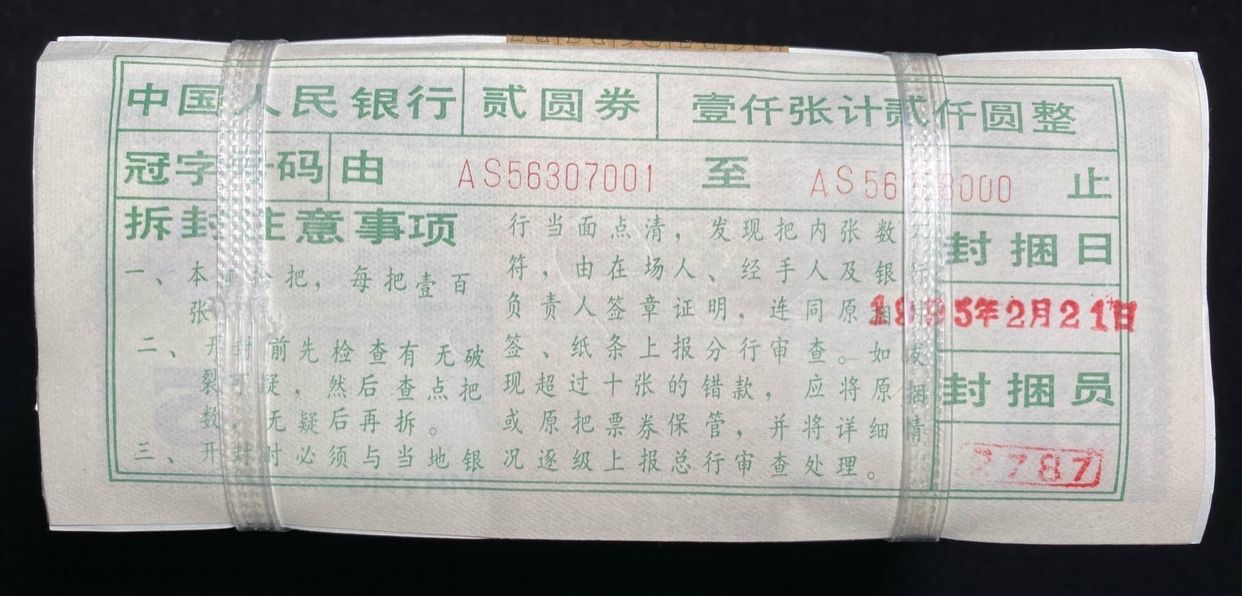 中国人民银行 贰圆券 壹仟张计贰仟圆整
冠字号码 由 AS56307001 至 AS56 8000 止
拆封注意事项
一、本 把，每把壹百
张
二、开封前先检查有无破
裂可疑，然后查点把
数，无疑后再拆。
三、开封时必须与当地银
行当面点清，发现把内张数
符，由在场人、经手人及银行
负责人签章证明，连同原捆
签、纸条上报分行审查。如发
现超过十张的错款，应将原捆
或原把票券保管，并将详细情
况逐级上报总行审查处理。
封捆日
1995年2月21日
封捆员
2787